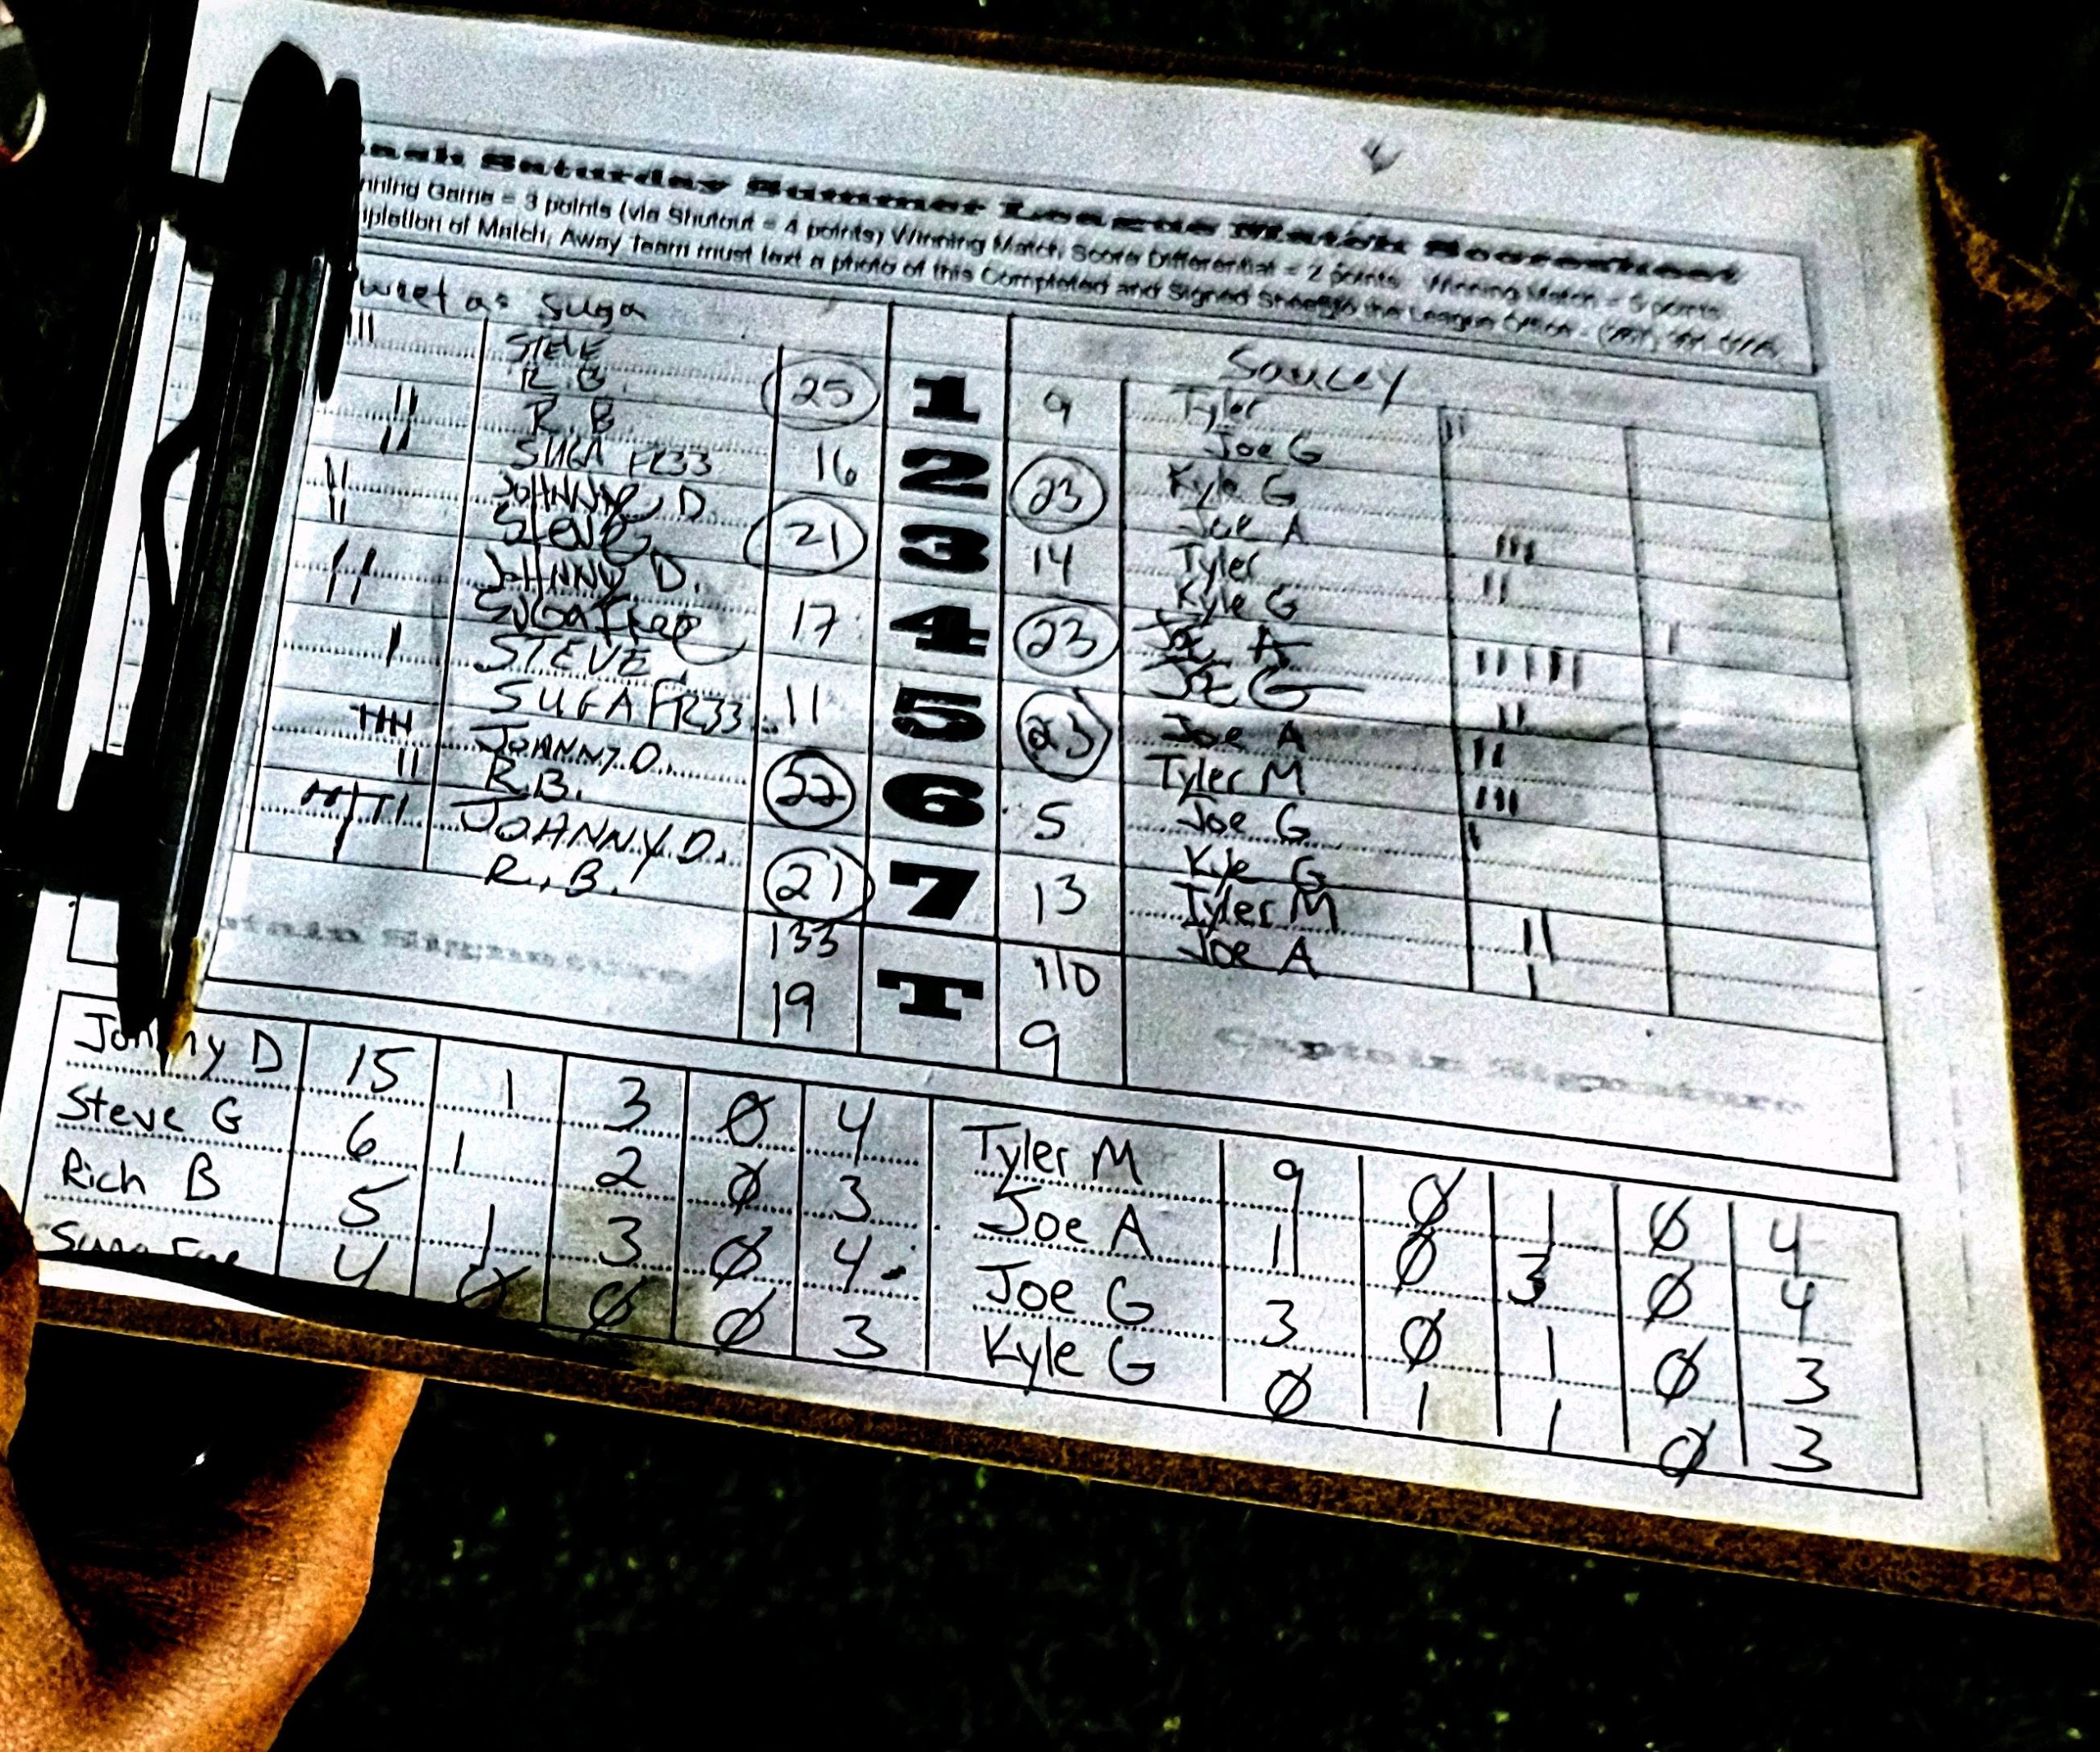 Saturday Summer League Match Scoresheet
Game = 3 points (via Shutout = 4 points) Winning Match Score Differential = 2 points Winning Match = 5 points
of Match, Away Team must text a photo of this Completed and Signed Sheet to the League Office -
as Suga Saucey
STEVE 25 1 9 Tyler
R.B. Joe G
R.B. 16 2 23 Kyle G
SUGA FR33 Joe A
JOHNNY D 21 3 14 Tyler
Steve G Kyle G
JOHNNY D. 17 4 23 Joe A
Suga Free JOE G
STEVE 11 5 23 Joe A
SUGA FR33 Tyler M
JOHNNY D. 22 6 5 Joe G
R.B. Kyle G
JOHNNY D. 21 7 13 Tyler M
R.B. Joe A
Signature 133 T 110 Captain Signature
19 9
Johnny D 15 1 3 Ø 4 Tyler M 9 Ø 1 Ø 4
Steve G 6 1 2 Ø 3 Joe A 11 Ø 3 Ø 4
Rich B 5 1 3 Ø 4 Joe G 3 Ø 1 Ø 3
4 Ø Ø Ø 3 Kyle G Ø 1 1 Ø 3